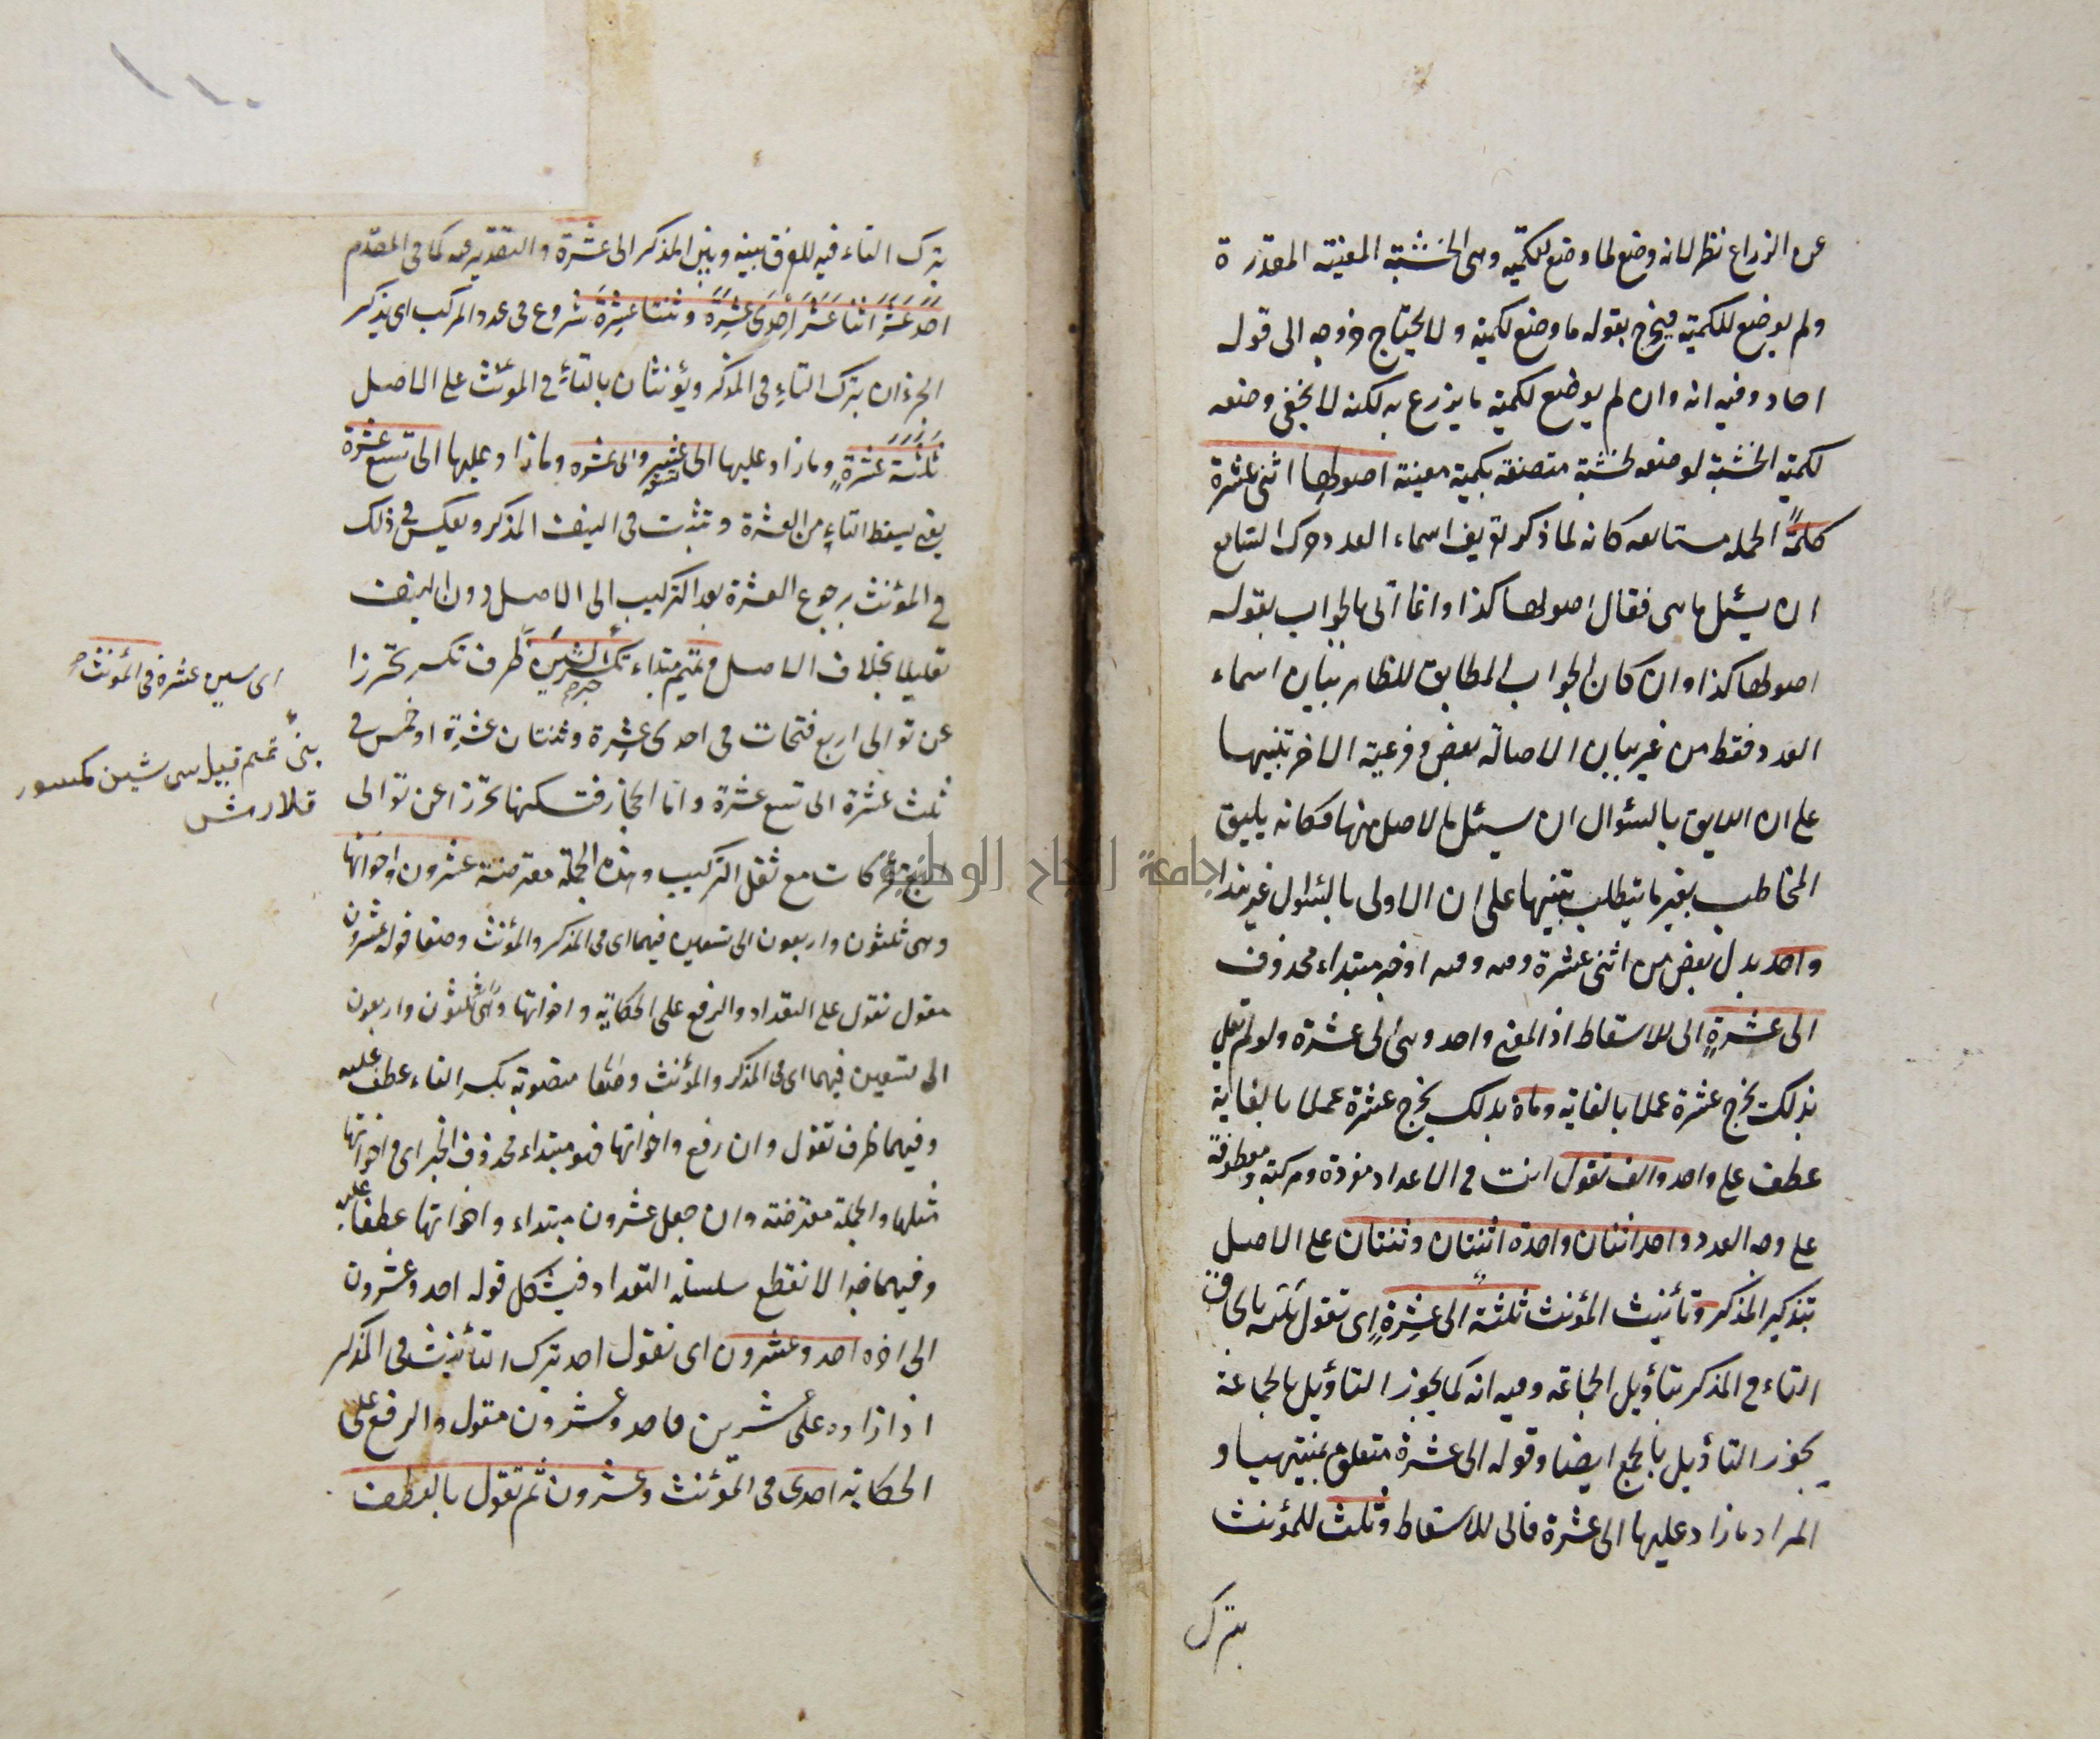 عن الذراع نظر لانه وضع لما وضع للكمية وهى الخشبة المعينة المقدرة
ولم يوضع للكمية فيخرج بقوله ما وضع لكمية ولا يحتاج خروجه الى قوله
احاد وفيه انه وان لم يوضع لكمية ما يذرع به لكنه لا يخفى وضعه
لكمية الخشبة لوضعه لخشبة متصفة بكمية معينة اصولها اثنى عشرة
كلمة الجملة مستانفه كانه لما ذكر تعريف اسماء العدد حرك السامع
ان يسئل ما هى فقال اصولها كذا وانما اتى بالجواب بقوله
اصولها كذا وان كان الجواب المطابق للظاهر ببيان اسماء
العدد فقط من غير بيان الاصالة بعض وفرعية الاخر تنبيها
على ان اللايق بالسؤال ان يسئل بالاصل منها فكانه يليق
المخاطب بغير ما يتطلب تنبيها على ان الاولى بالسئوال غير هذا
واحد بدل بعض من اثنى عشرة ومه ومه او خبر مبتداء محذوف
الى عشرة الى للاسقاط اذ المعنى واحد وهى الى عشرة ولو لم يقل
بذلك يخرج عشرة عملا بالغاية ومائة بذلك يخرج عشرة عملا بالغاية
عطف على واحد والف تقول انت فى الاعداد مفردة ومركبة ومعطوفة
على وجه العدد واحد اثنان واحدة اثنتان وثنتان على الاصل
بتذكير المذكر وتأنيث المؤنث ثلثة الى عشرة اى تقول ثلثه بالحاق
التاء فى المذكر بتأويل الجماعة وفيه انه كما يجوز التاويل بالجماعة
يجوز التأويل بالجمع ايضا وقوله الى عشرة متعلق بمنتهيا و
المراد ما زاد عليها الى عشرة فالى للاسقاط وثلث للمؤنث
بترك
١١٠
بترك التاء فيه للفرق بينه وبين المذكر الى عشرة والتقدير مه كما فى المقدم
احد عشر اثنا عشر احدى عشرة وثنتا عشرة شروع فى عدد المركب اى يذكر
الجزءان بترك التاء فى المذكر ويؤنثان بالتاء فى المؤنث على الاصل
ثلثة عشرة وما زاد عليها الى عشر والى عشره وما زاد عليها الى تسع عشرة
تسعة
يعنى يسقط التاء من العشرة وتثبت فى النيف المذكر ويعكس فى ذلك
فى المؤنث برجوع العشرة بعد التركيب الى الاصل دون النيف
تقليلا بخلاف الاصل وتميم مبتداء تكسر الشين ظرف تكسر تحرزا
خبره
عن توالى اربع فتحات فى احدى عشرة وثنتان عشرة او خمس فى
ثلث عشرة الى تسع عشرة واما الحجاز فتسكنها تحرزا عن توالى
اربع حركات مع ثقل التركيب وهذه الجملة معترضة عشرون واخواتها
وهى ثلثون واربعون الى تسعين فيهما اى فى المذكر والمؤنث وصفا قوله عشرون
مقول تقول على التعداد والرفع على الحكاية واخواتها وهى ثلثون واربعون
الى تسعين فيهما اى فى المذكر والمؤنث وصفا منصوبة بكسر التاء عطف عليه
وفيهما ظرف تقول وان رفع واخواتها فهو مبتداء محذوف الخبر اى واخواتها
مثلها والجملة معترضة وان جعل عشرون مبتداء واخواتها عطفا عليه
وفيهما خبرا لانقطع سلسلة التعداد فيشكل قوله احد وعشرون
الى اخره احد وعشرون اى تقول احد بترك التأنيث فى المذكر
اذا زاده على عشرين فاحد وعشرون مقول والرفع على
الحكاية احدى فى المؤنث وعشرون ثم تقول بالعطف
اى سين عشرة فى المؤنث
بنى تميم قبيله سى شين مكسور
قلارش
جامعة النجاح الوطنية